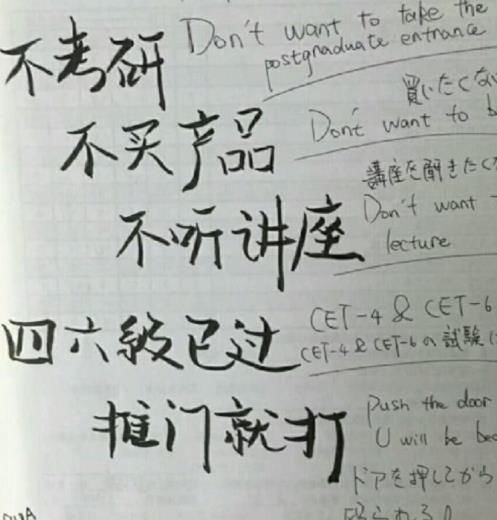 不考研
Don't want to take the
postgraduate entrance
買いたくな
不买产品
Don't want to b
講座を聞きたく
不听讲座
Don't want
lecture
四六级已过
CET-4 & CET-6
CET-4 & CET-6の試験に
推门就打
Push the door
U will be bea
ドアを押してから